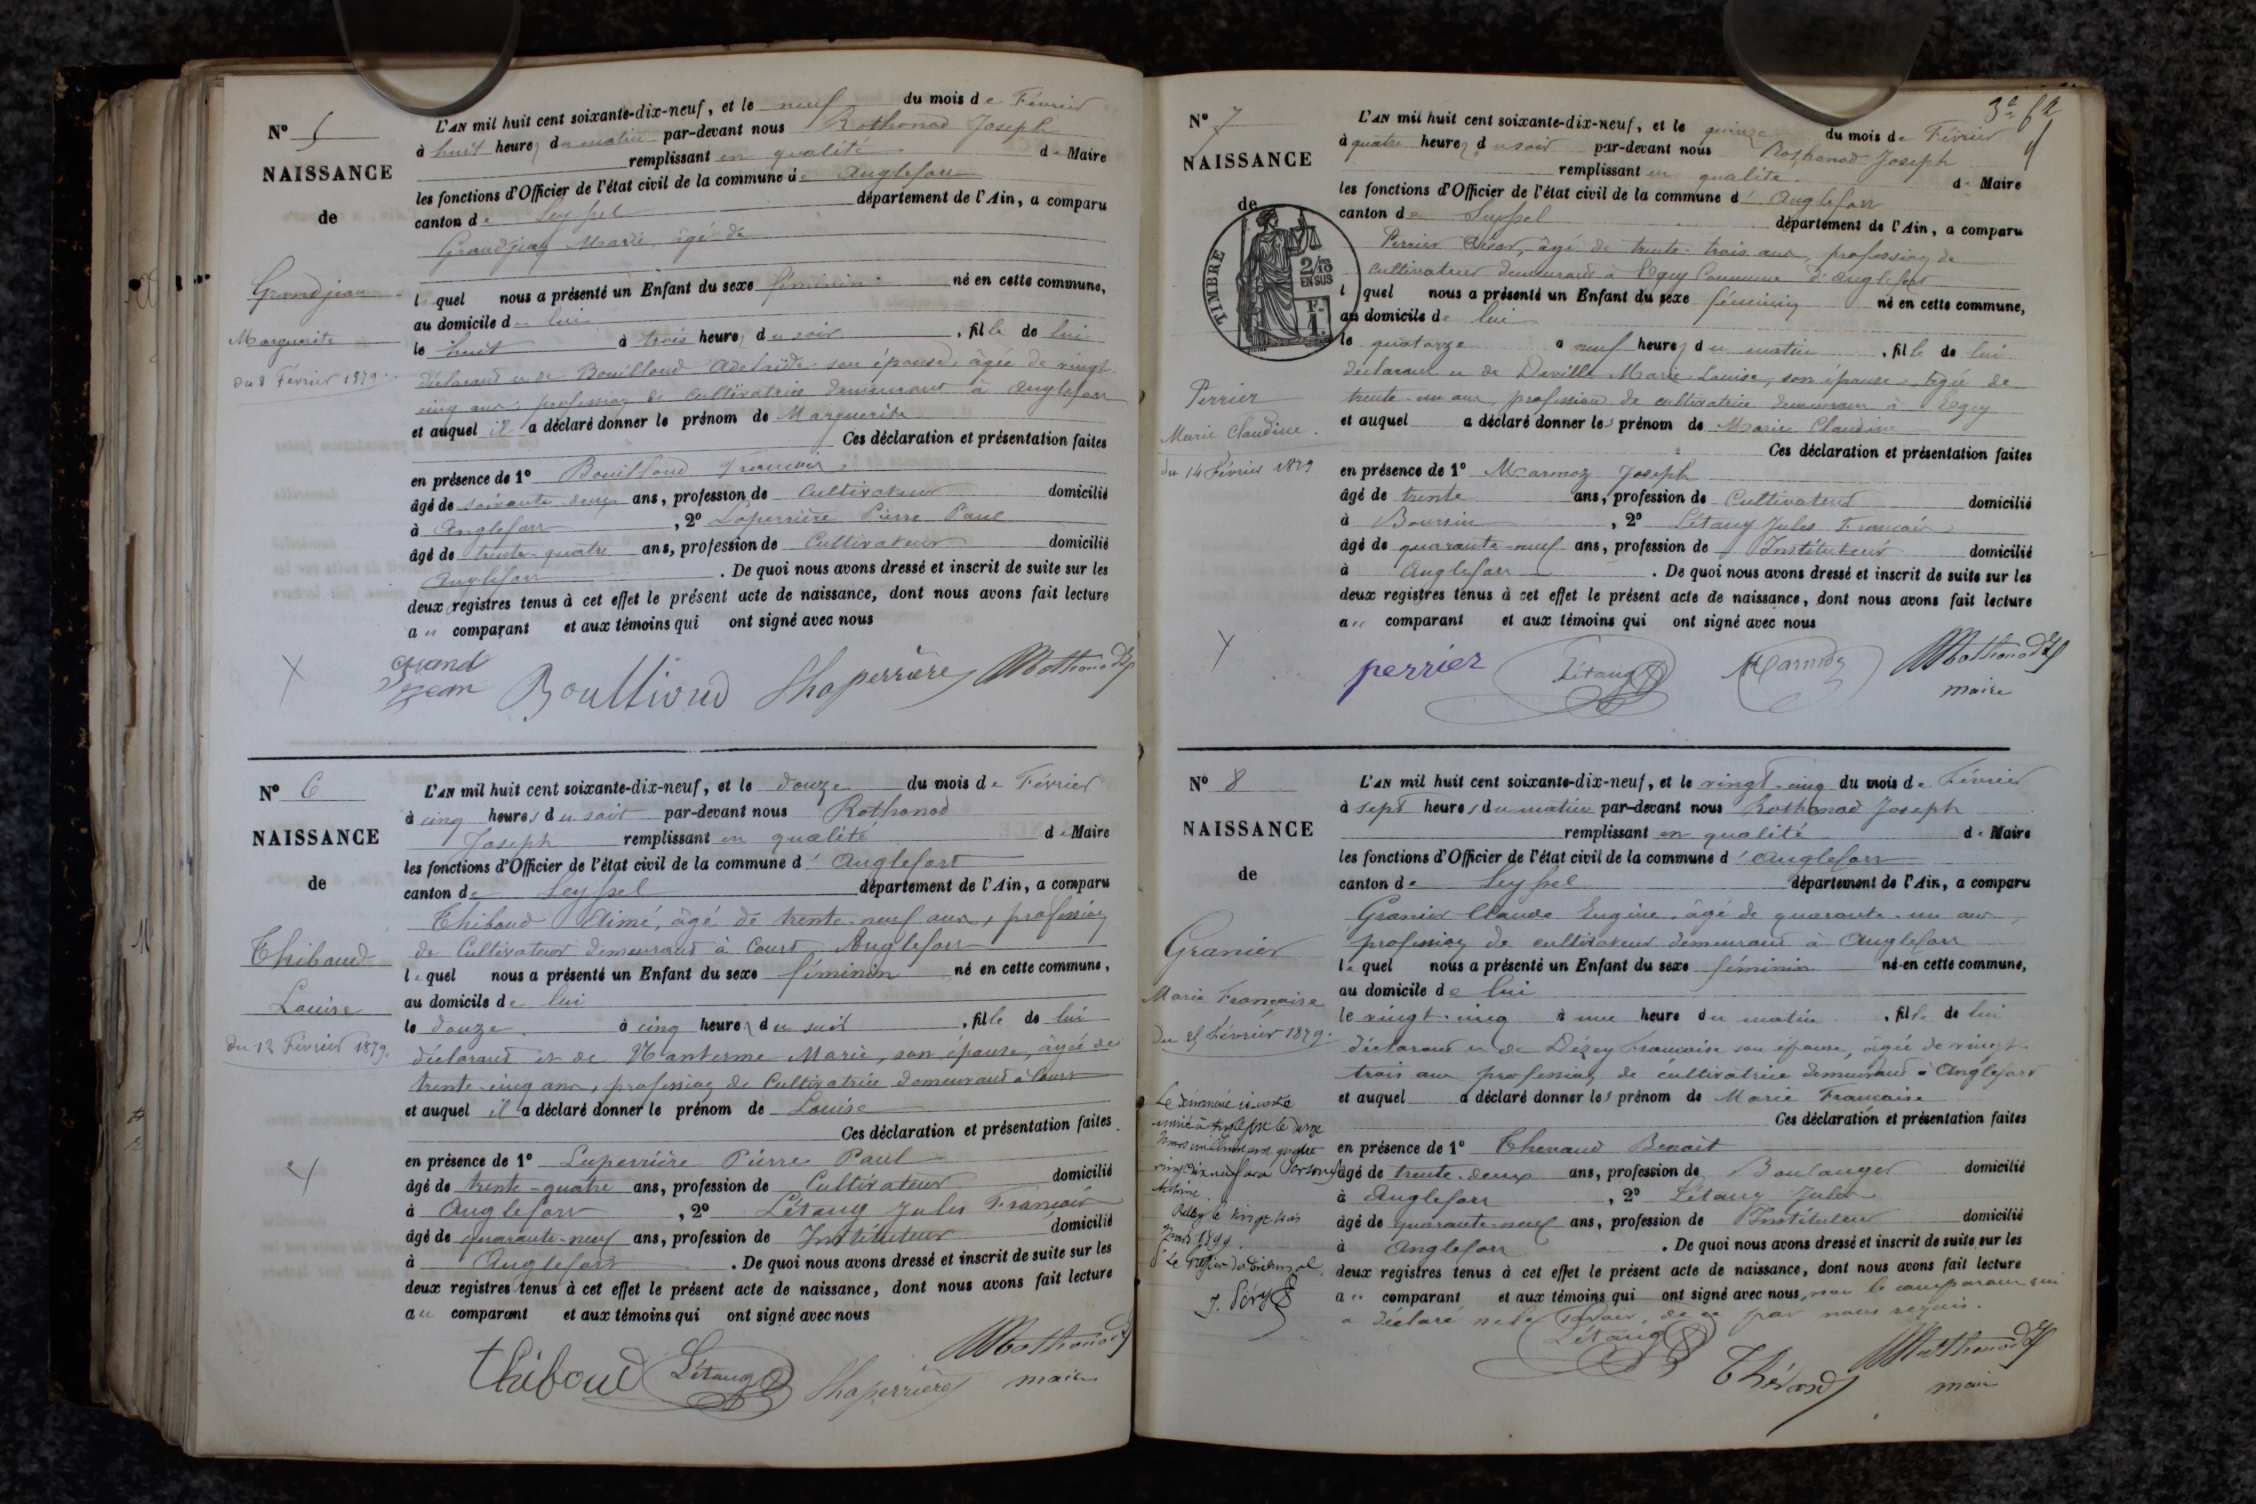 N° 5
NAISSANCE
de
Grandjean
Marguerite
du 8 Février 1879.
L'AN mil huit cent soixante-dix-neuf, et le neuf du mois de Février
à huit heures du matin par-devant nous Rothonod Joseph
remplissant en qualité de Maire
les fonctions d'Officier de l'état civil de la commune d' Anglefort
canton de Seyssel département de l'Ain, a comparu
Grandjean Marie, âgé de
lequel nous a présenté un Enfant du sexe féminin né en cette commune,
au domicile de lui
le huit à trois heures du soir, fille de lui
déclarant et de Bouilloud Adélaïde son épouse, âgée de vingt
cinq ans, profession de cultivatrice demeurant à Anglefort
et auquel il a déclaré donner le prénom de Marguerite
Ces déclaration et présentation faites
en présence de 1° Bouilloud François
âgé de soixante deux ans, profession de Cultivateur domicilié
à Anglefort, 2° Laperrière Pierre Paul
âgé de trente-quatre ans, profession de Cultivateur domicilié
Anglefort. De quoi nous avons dressé et inscrit de suite sur les
deux registres tenus à cet effet le présent acte de naissance, dont nous avons fait lecture
au comparant et aux témoins qui ont signé avec nous
grand
jean Boullioud Laperrière Rothonod
N° 6
NAISSANCE
de
Thibaud
Louise
du 12 Février 1879.
L'AN mil huit cent soixante-dix-neuf, et le douze du mois de Février
à cinq heures du soir par-devant nous Rothonod
Joseph remplissant en qualité de Maire
les fonctions d'Officier de l'état civil de la commune d' Anglefort
canton de Seyssel département de l'Ain, a comparu
Thiboud Aimé, âgé de trente-neuf ans, profession
de Cultivateur demeurant à Court Anglefort
lequel nous a présenté un Enfant du sexe féminin né en cette commune,
au domicile de lui
le douze à cinq heures du soir, fille de lui
déclarant et de Nanterme Marie, son épouse, âgée de
trente-cinq ans, profession de Cultivatrice demeurant à Court
et auquel il a déclaré donner le prénom de Louise
Ces déclaration et présentation faites
en présence de 1° Laperrière Pierre Paul
âgé de trente-quatre ans, profession de Cultivateur domicilié
à Anglefort, 2° Létang Jules François
âgé de quarante-neuf ans, profession de Instituteur domicilié
à Anglefort. De quoi nous avons dressé et inscrit de suite sur les
deux registres tenus à cet effet le présent acte de naissance, dont nous avons fait lecture
au comparant et aux témoins qui ont signé avec nous
thiboud Létang Laperrière Rothonod
maire
N° 7
NAISSANCE
de
TIMBRE
2/10
EN SUS
F.
1.
Perrier
Marie Claudine.
du 14 Février 1879
L'AN mil huit cent soixante-dix-neuf, et le quinze du mois de Février
à quatre heures du soir par-devant nous Rothonod Joseph
remplissant en qualité de Maire
les fonctions d'Officier de l'état civil de la commune d' Anglefort
canton de Seyssel département de l'Ain, a comparu
Perrier César, âgé de trente-trois ans, profession de
cultivateur demeurant à Commune d'Anglefort
lequel nous a présenté un Enfant du sexe féminin né en cette commune,
au domicile de lui
le quatorze à neuf heures du matin, fille de lui
déclarant et de Daville Marie Louise, son épouse, âgée de
trente-un ans, profession de cultivatrice demeurant à
et auquel a déclaré donner les prénom de Marie Claudine
Ces déclaration et présentation faites
en présence de 1° Marmoz Joseph
âgé de trente ans, profession de Cultivateur domicilié
à Boursin, 2° Létang Jules François
âgé de quarante-neuf ans, profession de Instituteur domicilié
à Anglefort. De quoi nous avons dressé et inscrit de suite sur les
deux registres tenus à cet effet le présent acte de naissance, dont nous avons fait lecture
au comparant et aux témoins qui ont signé avec nous
perrier Létang Marmoz Rothonod
maire
N° 8
NAISSANCE
de
Granier
Marie Françoise
du 25 Février 1879.
L'AN mil huit cent soixante-dix-neuf, et le vingt-cinq du mois de Février
à sept heures du matin par-devant nous Rothonod Joseph
remplissant en qualité de Maire
les fonctions d'Officier de l'état civil de la commune d' Anglefort
canton de Seyssel département de l'Ain, a comparu
Granier Claude Eugène, âgé de quarante-un ans
profession de cultivateur demeurant à Anglefort
lequel nous a présenté un Enfant du sexe féminin né en cette commune,
au domicile de lui
le vingt-cinq à une heure du matin, fille de lui
déclarant et de Dézey Françoise son épouse, âgée de vingt-
trois ans profession de cultivatrice demeurant à Anglefort
et auquel a déclaré donner les prénom de Marie Françoise
Ces déclaration et présentation faites
en présence de 1° Thevand Benoit
âgé de trente-deux ans, profession de Boulanger domicilié
à Anglefort, 2° Létang Jules
âgé de quarante-neuf ans, profession de Instituteur domicilié
à Anglefort. De quoi nous avons dressé et inscrit de suite sur les
deux registres tenus à cet effet le présent acte de naissance, dont nous avons fait lecture
au comparant et aux témoins qui ont signé avec nous, non le comparant qui
a déclaré ne le savoir, de ce par nous requis.
Létang Rothonod
maire